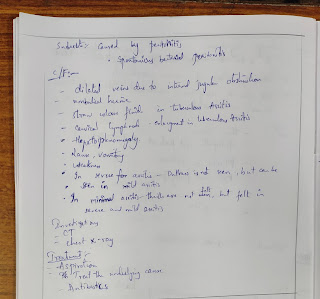 caused by peritonitis
• Spontaneous bacterial peritonitis
C/F:-
- dilated veins due to internal jugular obstruction
- umbilical hernia
- straw colour fluid in tuberculous Ascitis
- cervical lymphnode - enlargment in tuberculous Ascitis
- Hepatosplenomegaly
- Nausea - vomiting
- weakness
- In severe form ascitis - Dullness is not seen, but can be
seen in mild ascitis
- In minimal ascitis there are not fall, but fall in
severe and mild ascitis
Investigations
- CT
- chest x-ray
Treatment:-
- Aspiration
- Treat the underlying cause
- Antibiotics